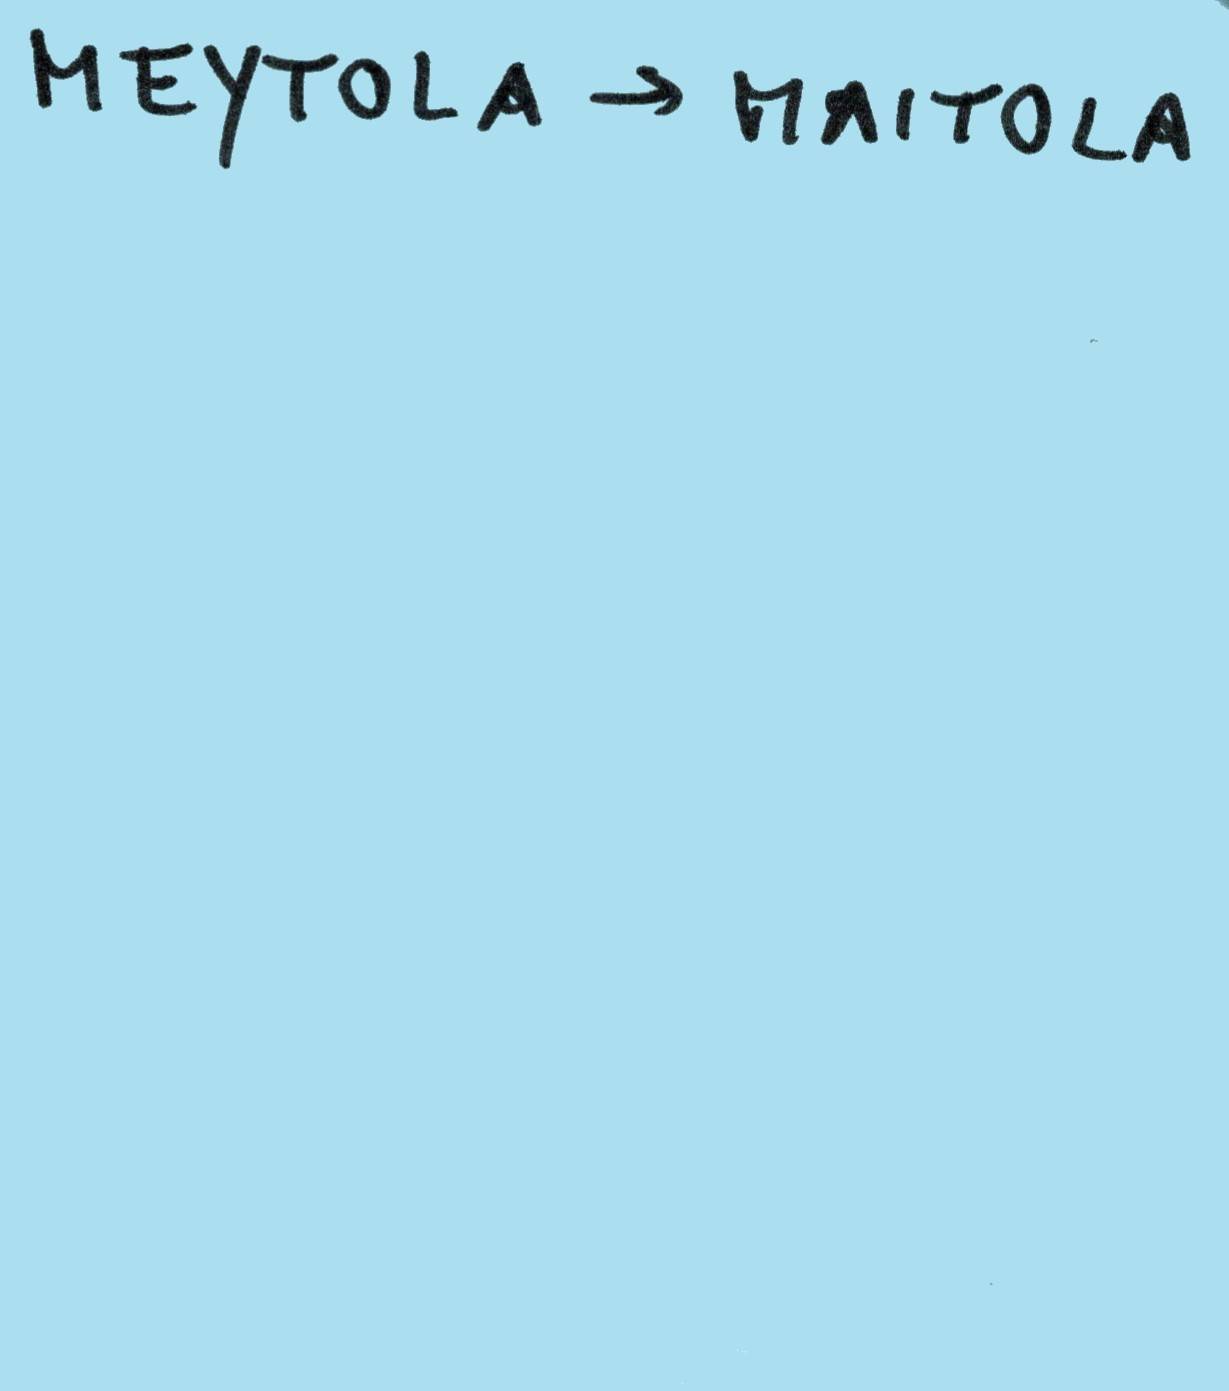 MEYTOLA → MAITOLA